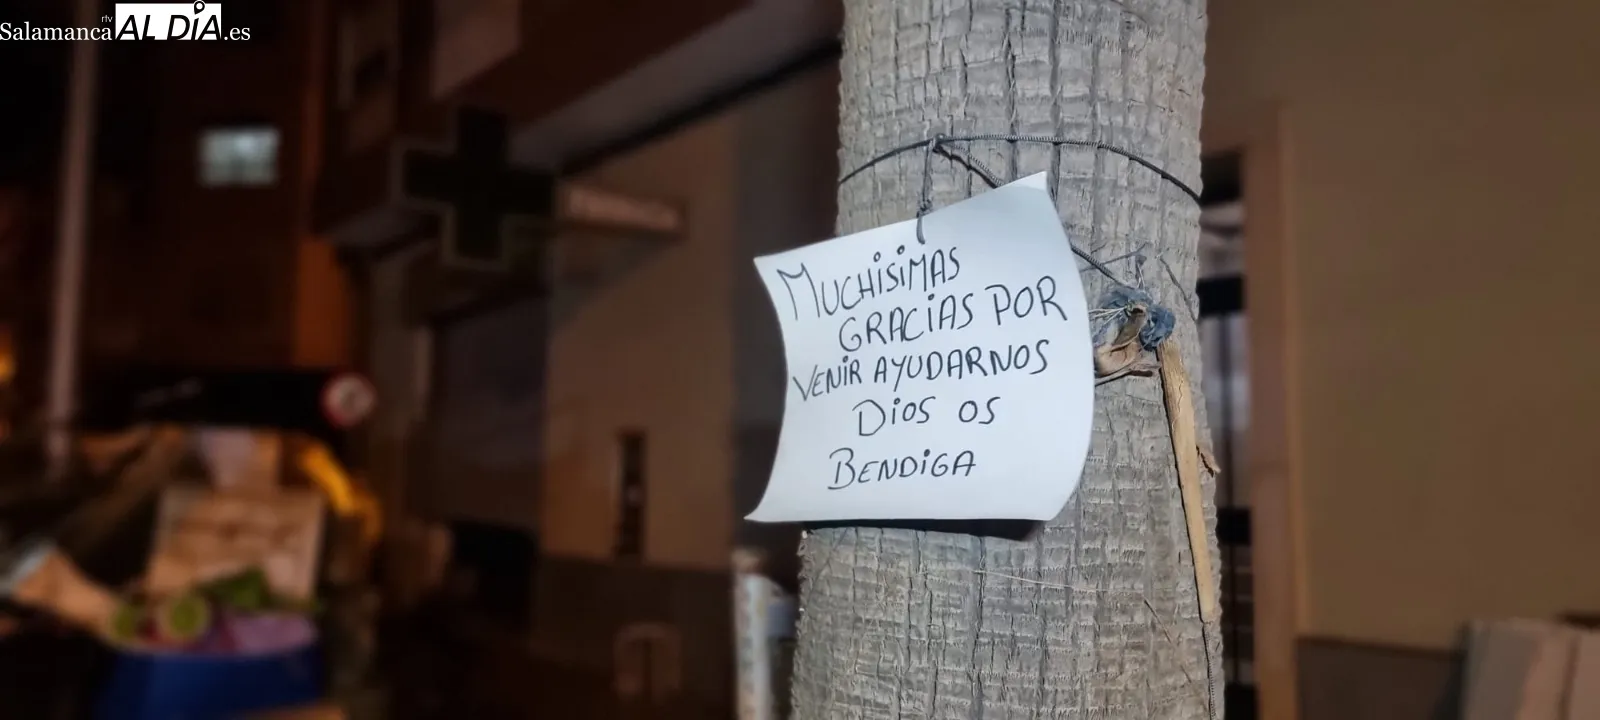 Salamanca rtv AL DÍA .es
MUCHÍSIMAS
GRACIAS POR
VENIR AYUDARNOS
DIOS OS
BENDIGA